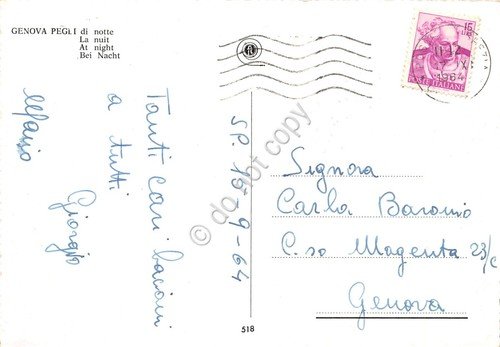 GENOVA PEGLI di notte
La nuit
At night
Bei Nacht
SP. 15-9-64
Tanti cari bacioni
a tutti
Giorgio
Signora
Carla Baronio
C. so Magenta 23/c
Genova
518
15
LIRE
POSTE ITALIANE
1964
do not copy